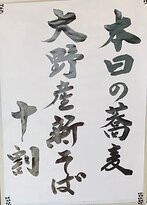 本日の蕎麦
大野産新そば
十割